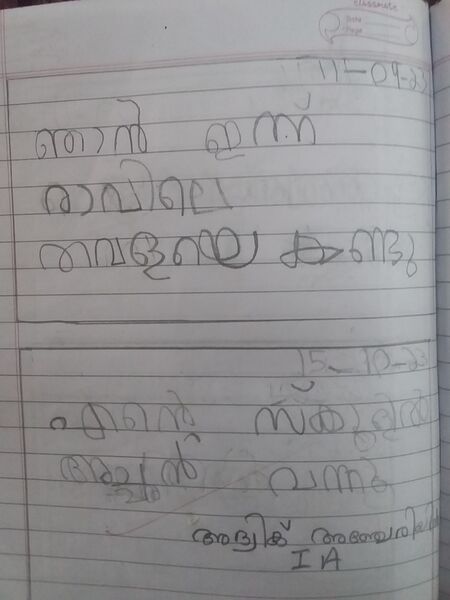 classmate
Date
Page
11-09-23
ഞാൻ ഇന്ന്
രാവിലെ
തവളയെ കണ്ടു
15-10-23
എന്റെ സ്കൂളിൽ
അച്ഛൻ വന്നു
അദ്വിക്
I A